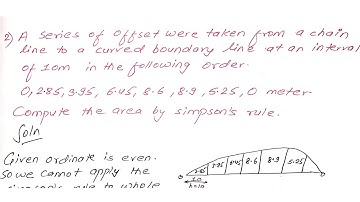 2) A series of offset were taken from a chain
line to a curved boundary line at an interval
of 10m in the following order.
0, 2.85, 3.95, 6.45, 8.6, 8.9, 5.25, 0 meter.
Compute the area by simpson's rule.
Soln
Given ordinate is even.
So we cannot apply the
simpson's rule to whole
6.45 8.6 8.9 5.25
10
h=10